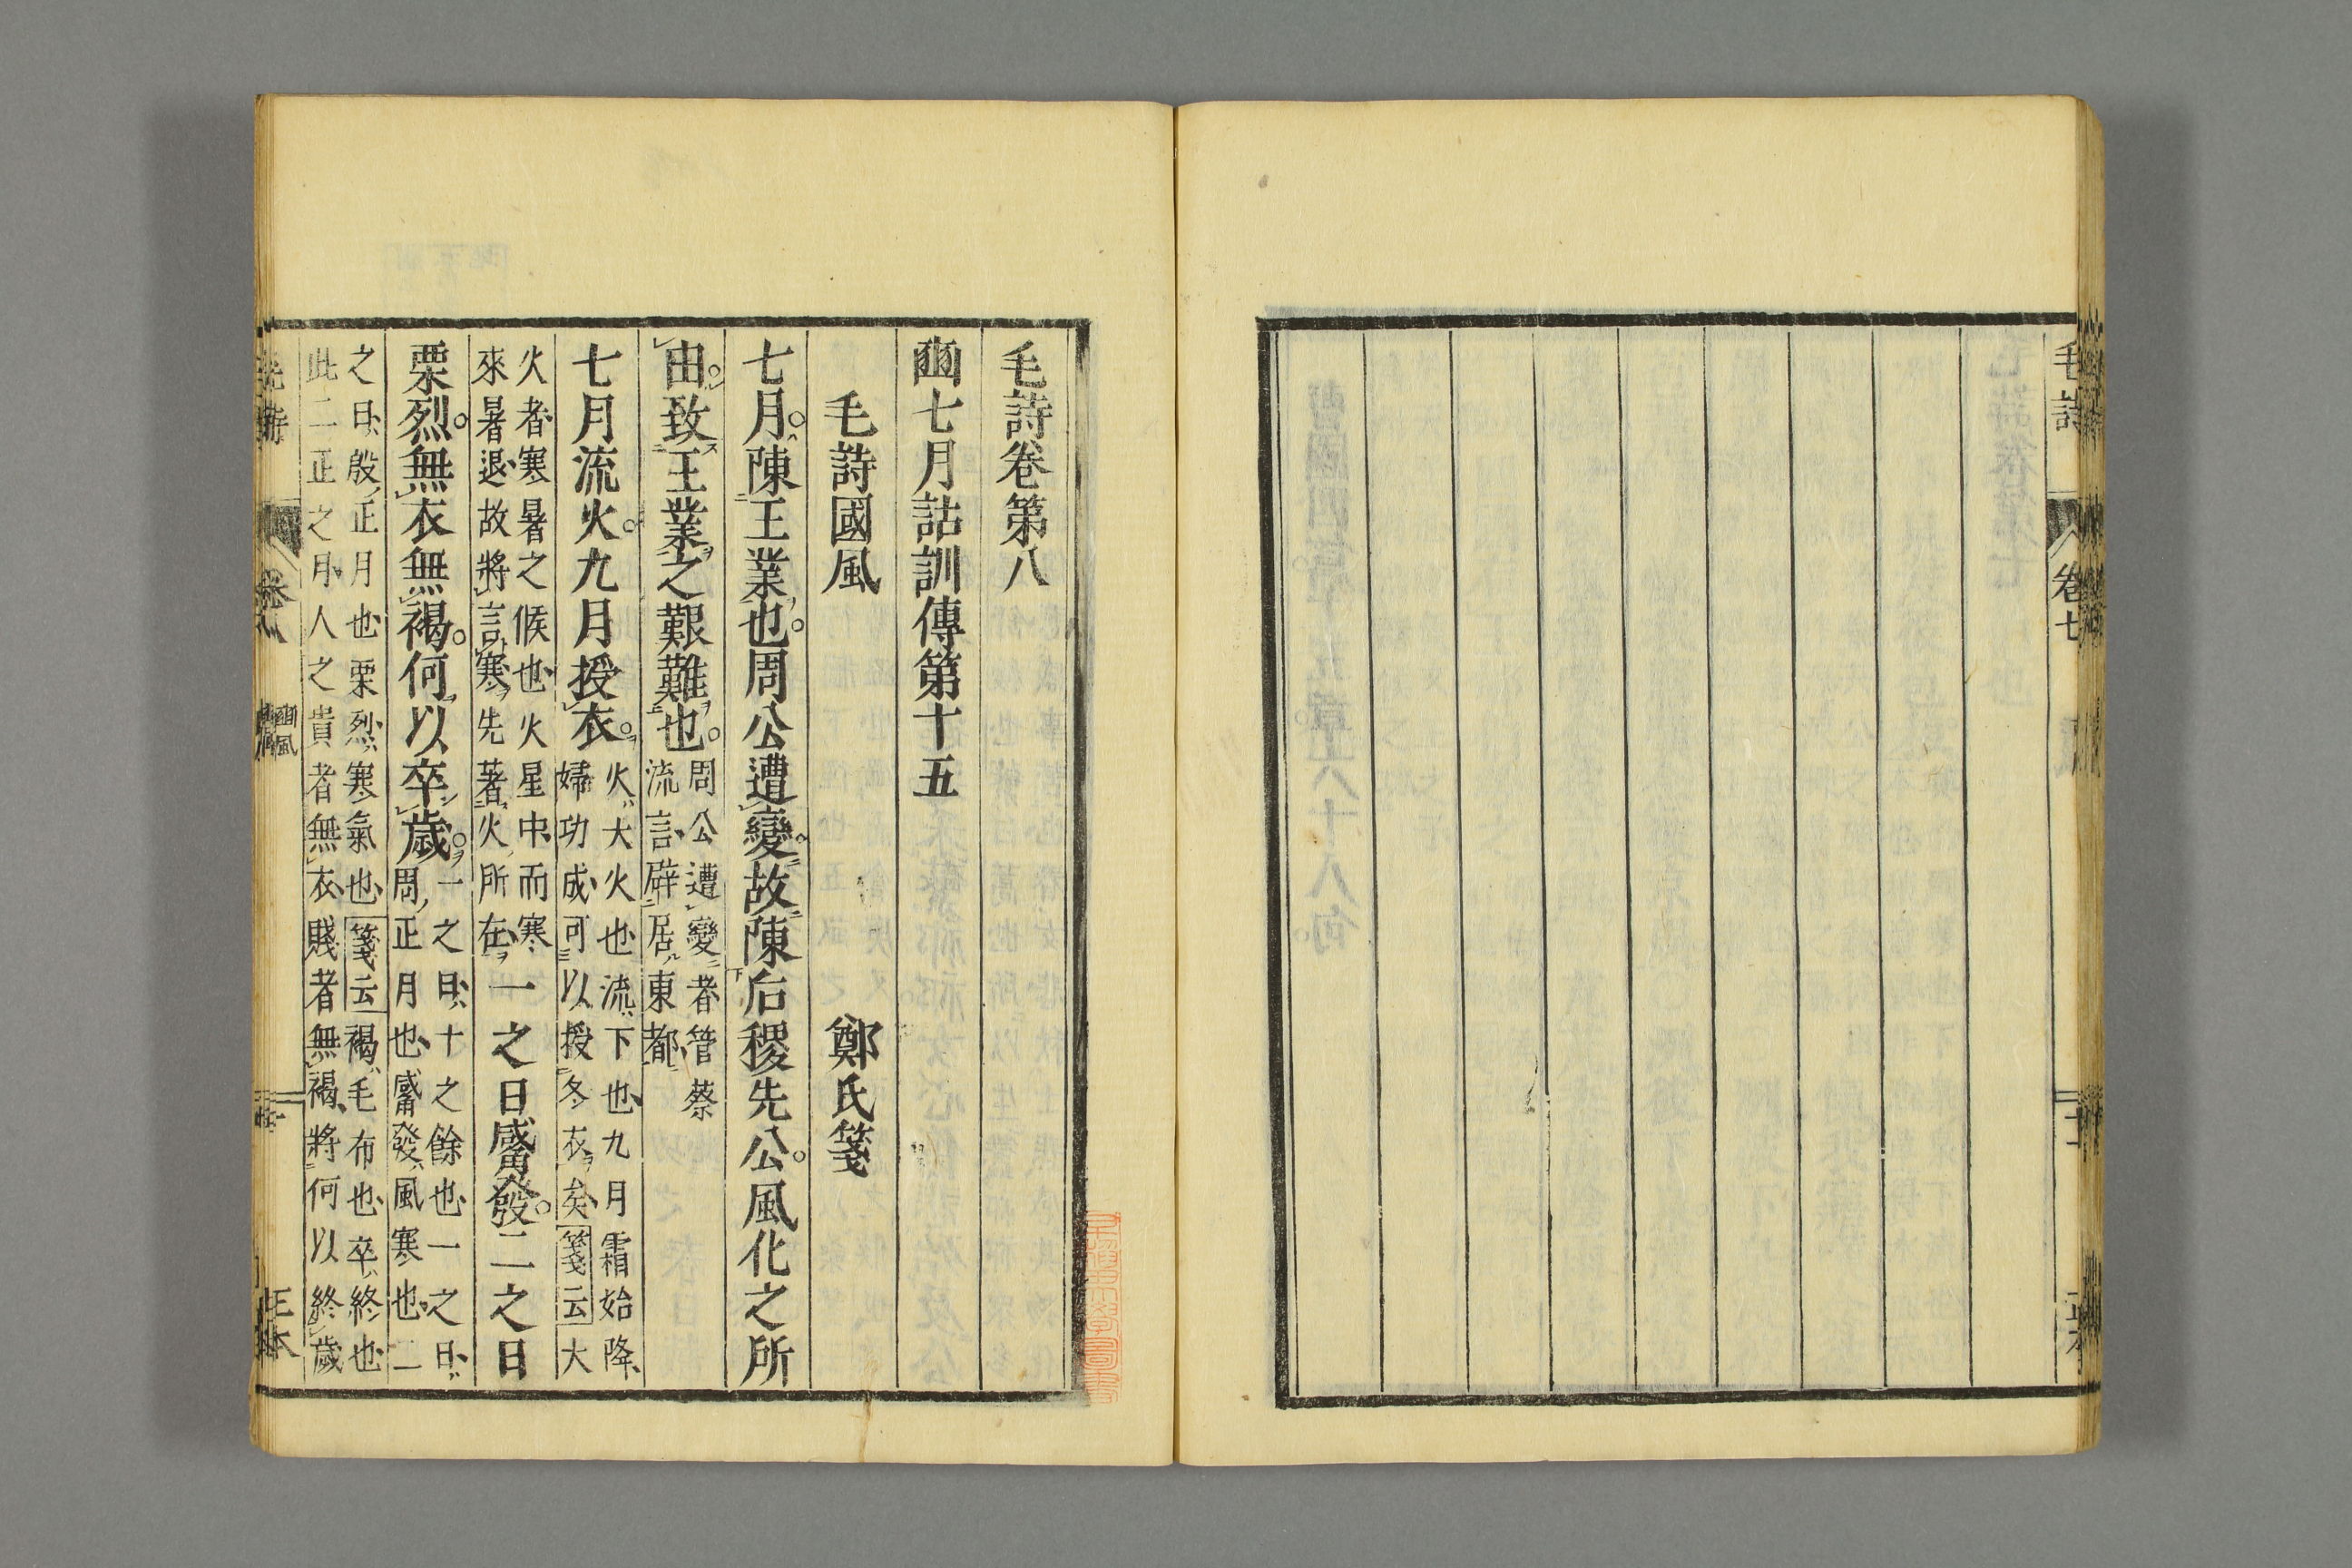 毛詩
卷七
毛詩卷第八
豳七月詁訓傳第十五
毛詩國風 鄭氏箋
七月。陳王業也。周公遭變。故陳后稷先公。風化之所
由。致王業之艱難也。周公遭變者管蔡
流言辟居東都
七月流火。九月授衣。火大火也流下也九月霜始降
婦功成可以授冬衣矣箋云大
火者寒暑之候也火星中而寒
來暑退故將言寒先著火所在一之日觱發。二之日
栗烈。無衣無褐。何以卒歲。一之日十之餘也一之日
周正月也觱發風寒也二
之日殷正月也栗烈寒氣也箋云褐毛布也卒終也
此二正之月人之貴者無衣賤者無褐將何以終歲
卷八
豳風